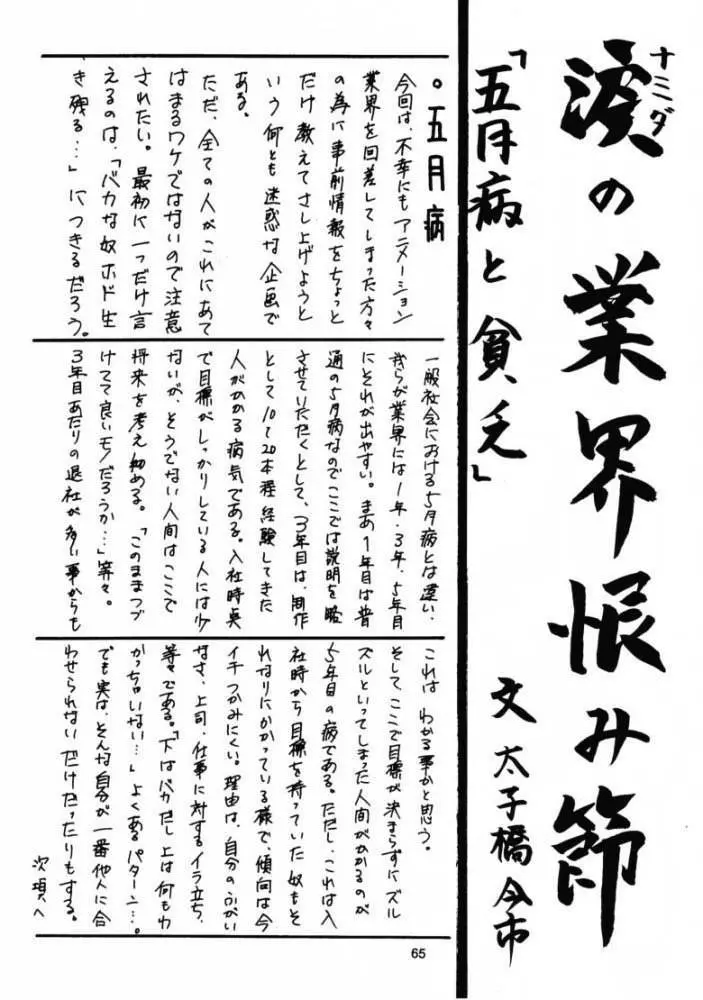 ナミダ
涙の業界恨み節
「五月病と貧乏」
文 太子橋今市
。五月病
今回は、不幸にもアニメーション
業界を回差してしまった方々
の為に事前情報をちょっと
だけ教えてさし上げようと
いう何とも迷惑な企画で
ある。
ただ、全ての人がこれにあて
はまるワケではないので注意
されたい。最初に一つだけ言
えるのは、「バカな奴ホド生
き残る…」につきるだろう。
一般社会における5月病とは違い、
我らが業界には1年・3年・5年目
にそれが出やすい。まあ1年目は普
通の5月病なのでここでは説明を略
させていただくとして、3年目は、制作
として10~20本程経験してきた
人がかかる病気である。入社時点
で目標がしっかりしている人には少
ないが、そうでない人間はここで
将来を考え始める。「このままつづ
けてて良いモノだろうか…」等々。
3年目あたりの退社が多い事からも
これはわかる事かと思う。
そしてここで目標が決まらずにズル
ズルといってしまった人間がかかるのが
5年目の病である。ただし、これは入
社時から目標を持っていた奴もそ
れなりにかかっている様で、傾向は今
イチつかみにくい。理由は、自分のふがい
なさ、上司、仕事に対するイラ立ち、
等々である。「下はバカだし上は何もわ
かっちゃいない…」よくあるパターン…。
でも実は、そんな自分が一番他人に合
わせられないだけだったりもする。
次項へ
65